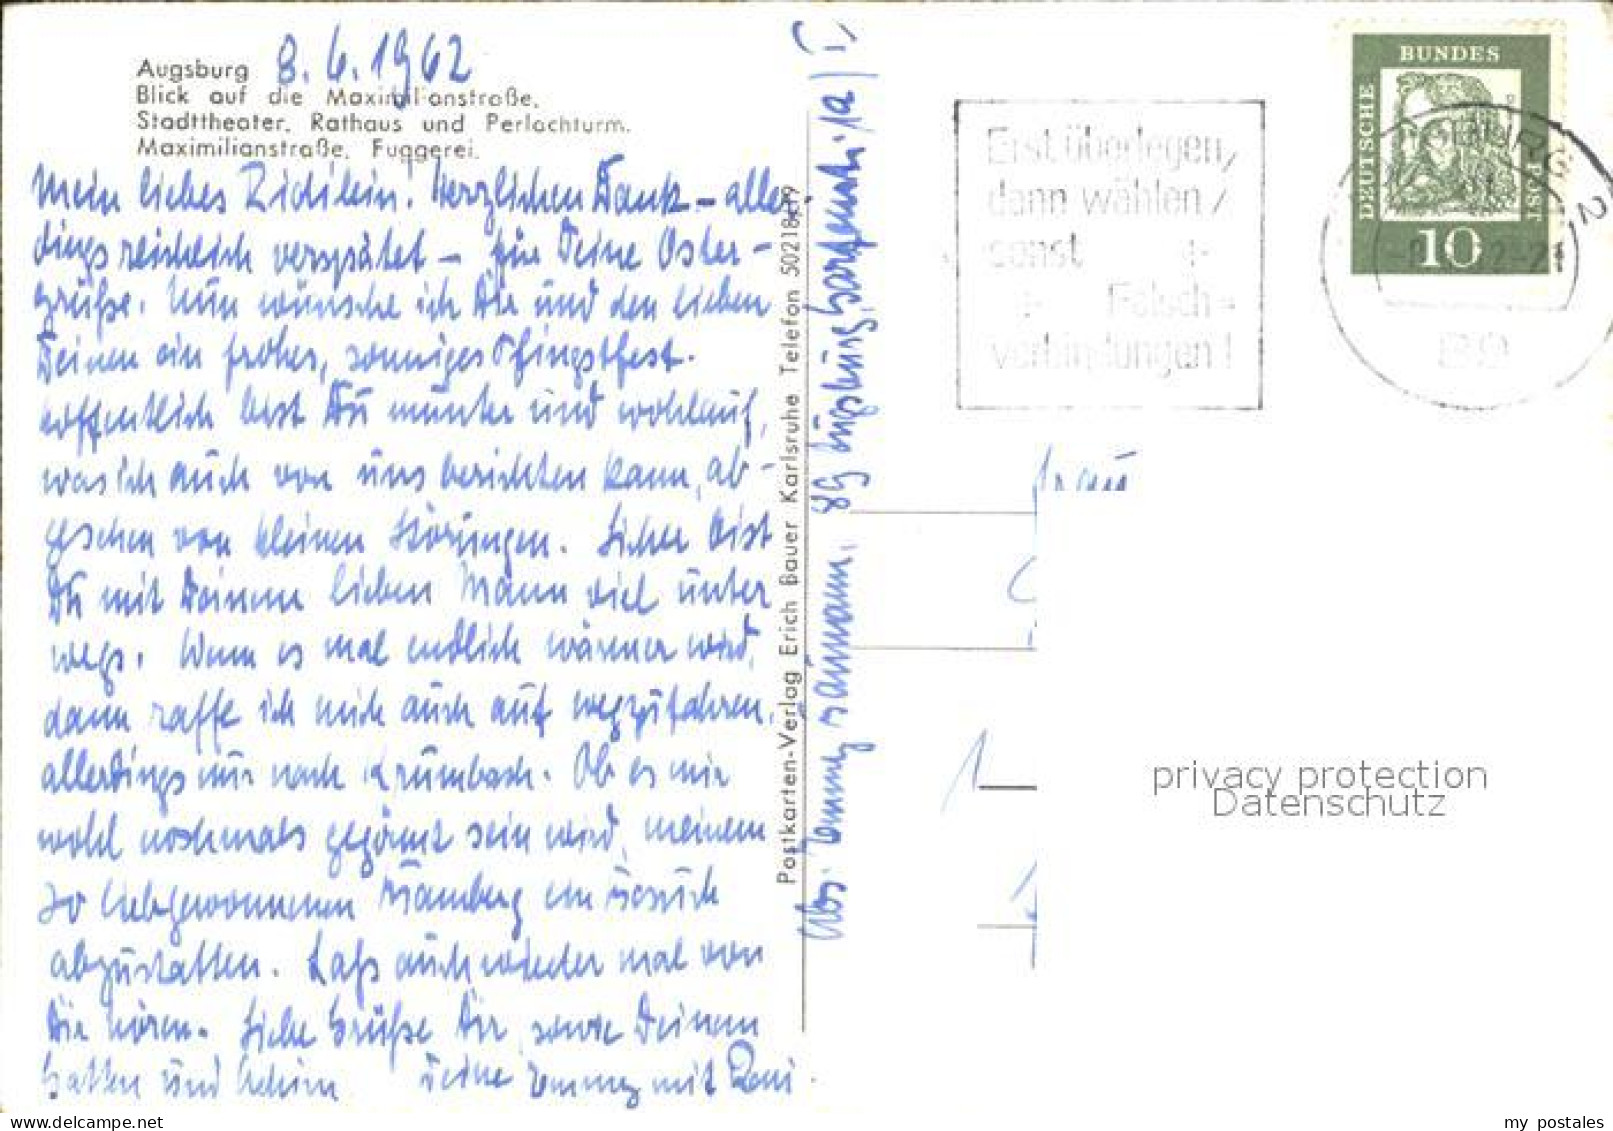 Augsburg 8.6.1962
Blick auf die Maximilianstraße,
Stadttheater, Rathaus und Perlachturm.
Maximilianstraße, Fuggerei.
Mein liebes ! Herzlichen Dank – aller-
dings reichlich verspätet – für Deine Oster-
grüße. Nun wünsche ich Dir und den lieben
Deinen ein frohes, sonniges Pfingstfest.
Hoffentlich bist Du munter und wohlauf,
was ich auch von uns berichten kann, ab-
gesehen von kleinen Störungen. Sicher bist
Du mit Deinem lieben Mann viel unter
wegs. Wenn es mal endlich wärmer wird,
dann raffe ich mich auch auf wegzufahren,
allerdings nur nach Krumbach. Ob es mir
wohl nochmals gegönnt sein wird, meinem
so liebgewonnenen Bamberg ein Besuch
abzustatten. Laß auch wieder mal von
Dir hören. Liebe Grüße Dir, sowie Deinem
Gatten und Deine Emmy mit
Postkarten-Verlag Erich Bauer Karlsruhe Telefon
Abs. Emmy 89 Augsburg,
Erst überlegen,
dann wählen,
sonst
Falsch-
verbindungen!
DEUTSCHE
BUNDES
POST
10
Frau
privacy protection
Datenschutz
my postales